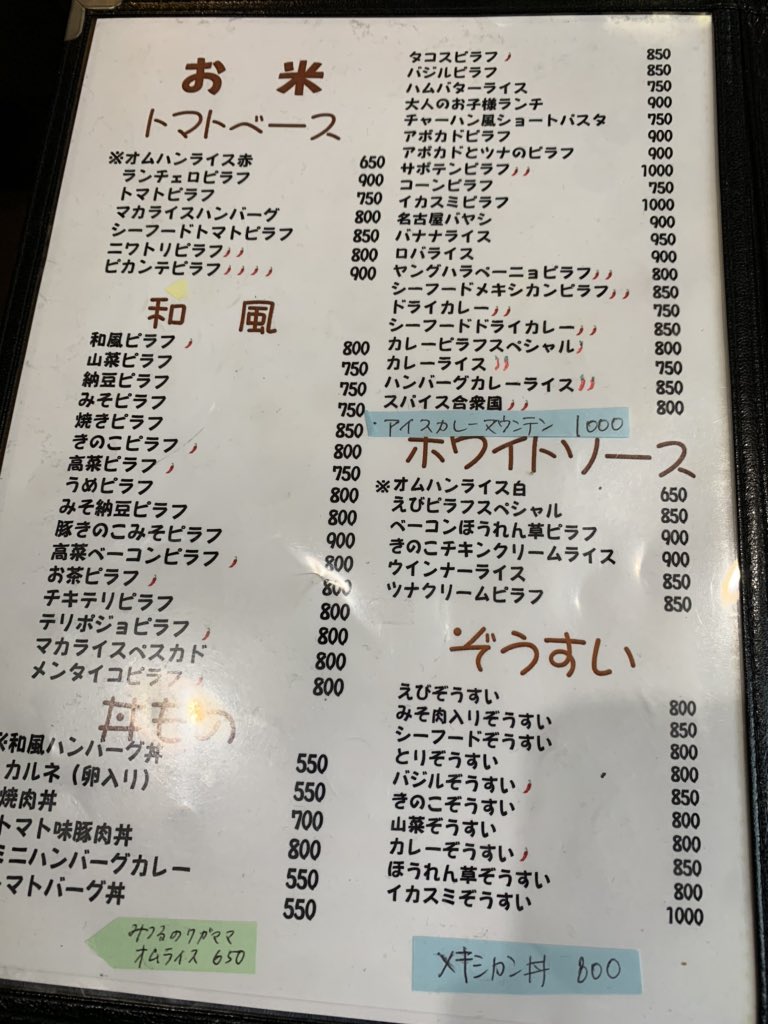 お米
トマトベース
※オムハンライス赤 650
ランチェロピラフ 900
トマトピラフ 750
マカライスハンバーグ 800
シーフードトマトピラフ 850
ニワトリピラフ 800
ピカンテピラフ 900
和風
和風ピラフ 800
山菜ピラフ 750
納豆ピラフ 750
みそピラフ 750
焼きピラフ 850
きのこピラフ 800
高菜ピラフ 750
うめピラフ 800
みそ納豆ピラフ 800
豚きのこみそピラフ 900
高菜ベーコンピラフ 800
お茶ピラフ 800
チキテリピラフ 800
テリポジョピラフ 800
マカライスペスカド 800
メンタイコピラフ 800
丼もの
※和風ハンバーグ丼 550
カルネ（卵入り） 550
焼肉丼 700
トマト味豚肉丼 800
ミニハンバーグカレー 550
トマトバーグ丼 550
みつるのワガママ
オムライス 650
タコスピラフ 850
バジルピラフ 850
ハムバターライス 750
大人のお子様ランチ 900
チャーハン風ショートパスタ 750
アボカドピラフ 900
アボカドとツナのピラフ 900
サボテンピラフ 1000
コーンピラフ 750
イカスミピラフ 1000
名古屋バヤシ 900
バナナライス 950
ロバライス 900
ヤングハラペーニョピラフ 800
シーフードメキシカンピラフ 850
ドライカレー 750
シーフードドライカレー 850
カレーピラフスペシャル 800
カレーライス 750
ハンバーグカレーライス 850
スパイス合衆国 800
・アイスカレーマウンテン 1000
ホワイトソース
※オムハンライス白 650
えびピラフスペシャル 850
ベーコンほうれん草ピラフ 900
きのこチキンクリームライス 900
ウインナーライス 850
ツナクリームピラフ 850
ぞうすい
えびぞうすい 800
みそ肉入りぞうすい 850
シーフードぞうすい 800
とりぞうすい 800
バジルぞうすい 850
きのこぞうすい 800
山菜ぞうすい 800
カレーぞうすい 850
ほうれん草ぞうすい 800
イカスミぞうすい 1000
メキシカン丼 800